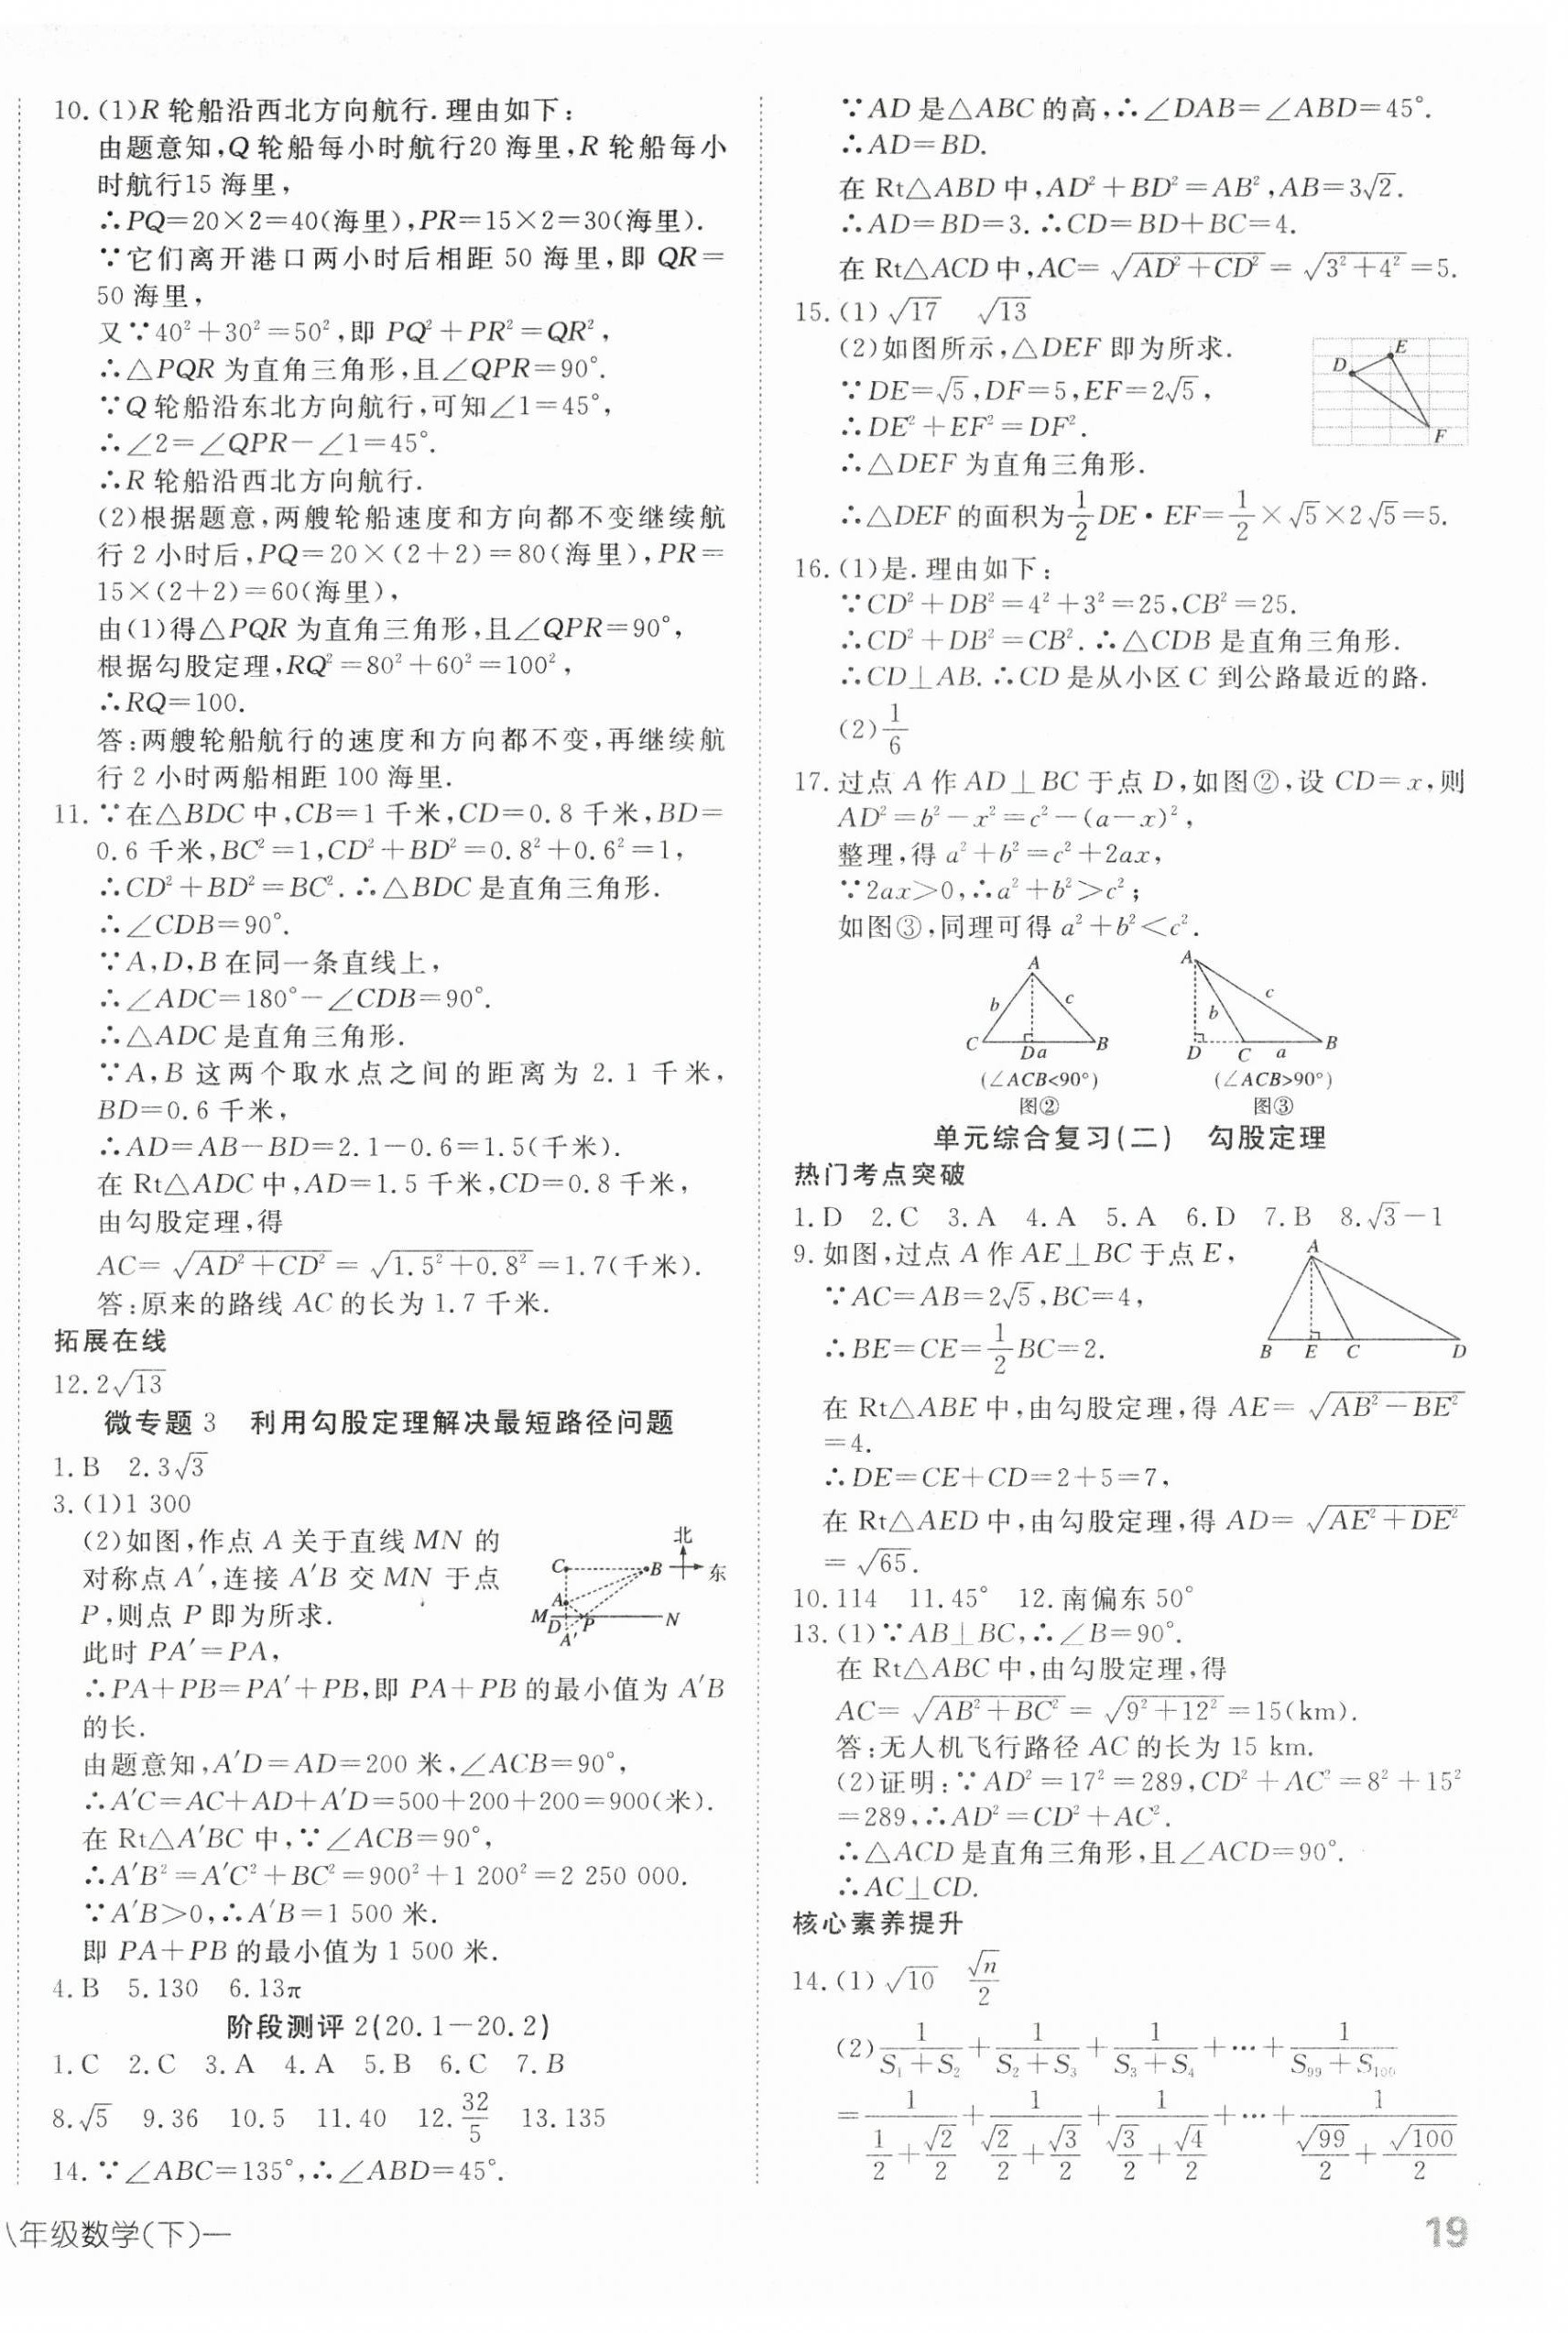 10. (1)R 轮船沿西北方向航行. 理由如下:
由题意知,Q 轮船每小时航行20 海里,R 轮船每小
时航行15 海里,
∴PQ=20×2=40(海里),PR=15×2=30(海里).
∵它们离开港口两小时后相距 50 海里,即 QR=
50 海里,
又∵40²+30²=50²,即 PQ²+PR²=QR²,
∴△PQR 为直角三角形,且∠QPR=90°.
∵Q 轮船沿东北方向航行,可知∠1=45°,
∴∠2=∠QPR-∠1=45°.
∴R 轮船沿西北方向航行.
(2)根据题意,两艘轮船速度和方向都不变继续航
行 2 小时后,PQ=20×(2+2)=80(海里),PR=
15×(2+2)=60(海里),
由(1)得△PQR 为直角三角形,且∠QPR=90°,
根据勾股定理,RQ²=80²+60²=100²,
∴RQ=100.
答:两艘轮船航行的速度和方向都不变,再继续航
行 2 小时两船相距 100 海里.
11. ∵在△BDC 中,CB=1 千米,CD=0.8 千米,BD=
0.6 千米,BC²=1,CD²+BD²=0.8²+0.6²=1,
∴CD²+BD²=BC². ∴△BDC 是直角三角形.
∴∠CDB=90°.
∵A,D,B 在同一条直线上,
∴∠ADC=180°-∠CDB=90°.
∴△ADC 是直角三角形.
∵A,B 这两个取水点之间的距离为 2.1 千米,
BD=0.6 千米,
∴AD=AB-BD=2.1-0.6=1.5(千米).
在 Rt△ADC 中,AD=1.5 千米,CD=0.8 千米,
由勾股定理,得
AC=√(AD²+CD²)=√(1.5²+0.8²)=1.7(千米).
答:原来的路线 AC 的长为 1.7 千米.
拓展在线
12. 2√13
微专题 3 利用勾股定理解决最短路径问题
1. B 2. 3√3
3. (1)1 300
(2)如图,作点 A 关于直线 MN 的
对称点 A′,连接 A′B 交 MN 于点
P,则点 P 即为所求.
此时 PA′=PA,
北
东
C B
A
M D P N
A′
∴PA+PB=PA′+PB,即 PA+PB 的最小值为 A′B
的长.
由题意知,A′D=AD=200 米,∠ACB=90°,
∴A′C=AC+AD+A′D=500+200+200=900(米).
在 Rt△A′BC 中,∵∠ACB=90°,
∴A′B²=A′C²+BC²=900²+1 200²=2 250 000.
∵A′B>0,∴A′B=1 500 米.
即 PA+PB 的最小值为 1 500 米.
4. B 5. 130 6. 13π
阶段测评 2(20.1-20.2)
1. C 2. C 3. A 4. A 5. B 6. C 7. B
8. √5 9. 36 10. 5 11. 40 12. 32/5 13. 135
14. ∵∠ABC=135°,∴∠ABD=45°.
八年级数学(下)一
∵AD 是△ABC 的高,∴∠DAB=∠ABD=45°.
∴AD=BD.
在 Rt△ABD 中,AD²+BD²=AB²,AB=3√2.
∴AD=BD=3. ∴CD=BD+BC=4.
在 Rt△ACD 中,AC=√(AD²+CD²)=√(3²+4²)=5.
15. (1)√17 √13
(2)如图所示,△DEF 即为所求.
∵DE=√5,DF=5,EF=2√5,
∴DE²+EF²=DF².
∴△DEF 为直角三角形.
D E
F
∴△DEF 的面积为1/2 DE·EF=1/2×√5×2√5=5.
16. (1)是. 理由如下:
∵CD²+DB²=4²+3²=25,CB²=25.
∴CD²+DB²=CB². ∴△CDB 是直角三角形.
∴CD⊥AB. ∴CD 是从小区 C 到公路最近的路.
(2)1/6
17. 过点 A 作 AD⊥BC 于点 D,如图②,设 CD=x,则
AD²=b²-x²=c²-(a-x)²,
整理,得 a²+b²=c²+2ax,
∵2ax>0,∴a²+b²>c²;
如图③,同理可得 a²+b²<c².
A A
b c b c
C D a B D C a B
(∠ACB<90°) (∠ACB>90°)
图② 图③
单元综合复习(二) 勾股定理
热门考点突破
1. D 2. C 3. A 4. A 5. A 6. D 7. B 8. √3-1
9. 如图,过点 A 作 AE⊥BC 于点 E,
∵AC=AB=2√5,BC=4,
∴BE=CE=1/2 BC=2.
A
B E C D
在 Rt△ABE 中,由勾股定理,得 AE=√(AB²-BE²)
=4.
∴DE=CE+CD=2+5=7,
在 Rt△AED 中,由勾股定理,得 AD=√(AE²+DE²)
=√65.
10. 114 11. 45° 12. 南偏东 50°
13. (1)∵AB⊥BC,∴∠B=90°.
在 Rt△ABC 中,由勾股定理,得
AC=√(AB²+BC²)=√(9²+12²)=15(km).
答:无人机飞行路径 AC 的长为 15 km.
(2)证明:∵AD²=17²=289,CD²+AC²=8²+15²
=289,∴AD²=CD²+AC².
∴△ACD 是直角三角形,且∠ACD=90°.
∴AC⊥CD.
核心素养提升
14. (1)√10 √n/2
(2)1/(S₁+S₂)+1/(S₂+S₃)+1/(S₃+S₄)+…+1/(S₉₉+S₁₀₀)
=1/(1/2+√2/2)+1/(√2/2+√3/2)+1/(√3/2+√4/2)+…+1/(√99/2+√100/2)
19